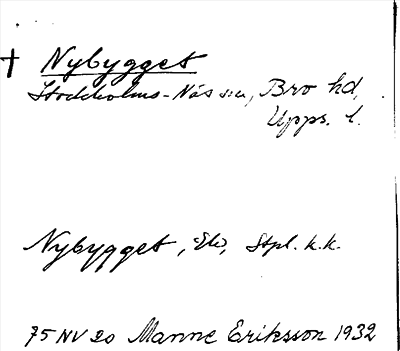 † Nybygget
Stockholms-Näs sn, Bro hd,
Upps. l.
Nybygget, Ek, Stpl. k.k.
75 NV 20 Manne Eriksson 1932